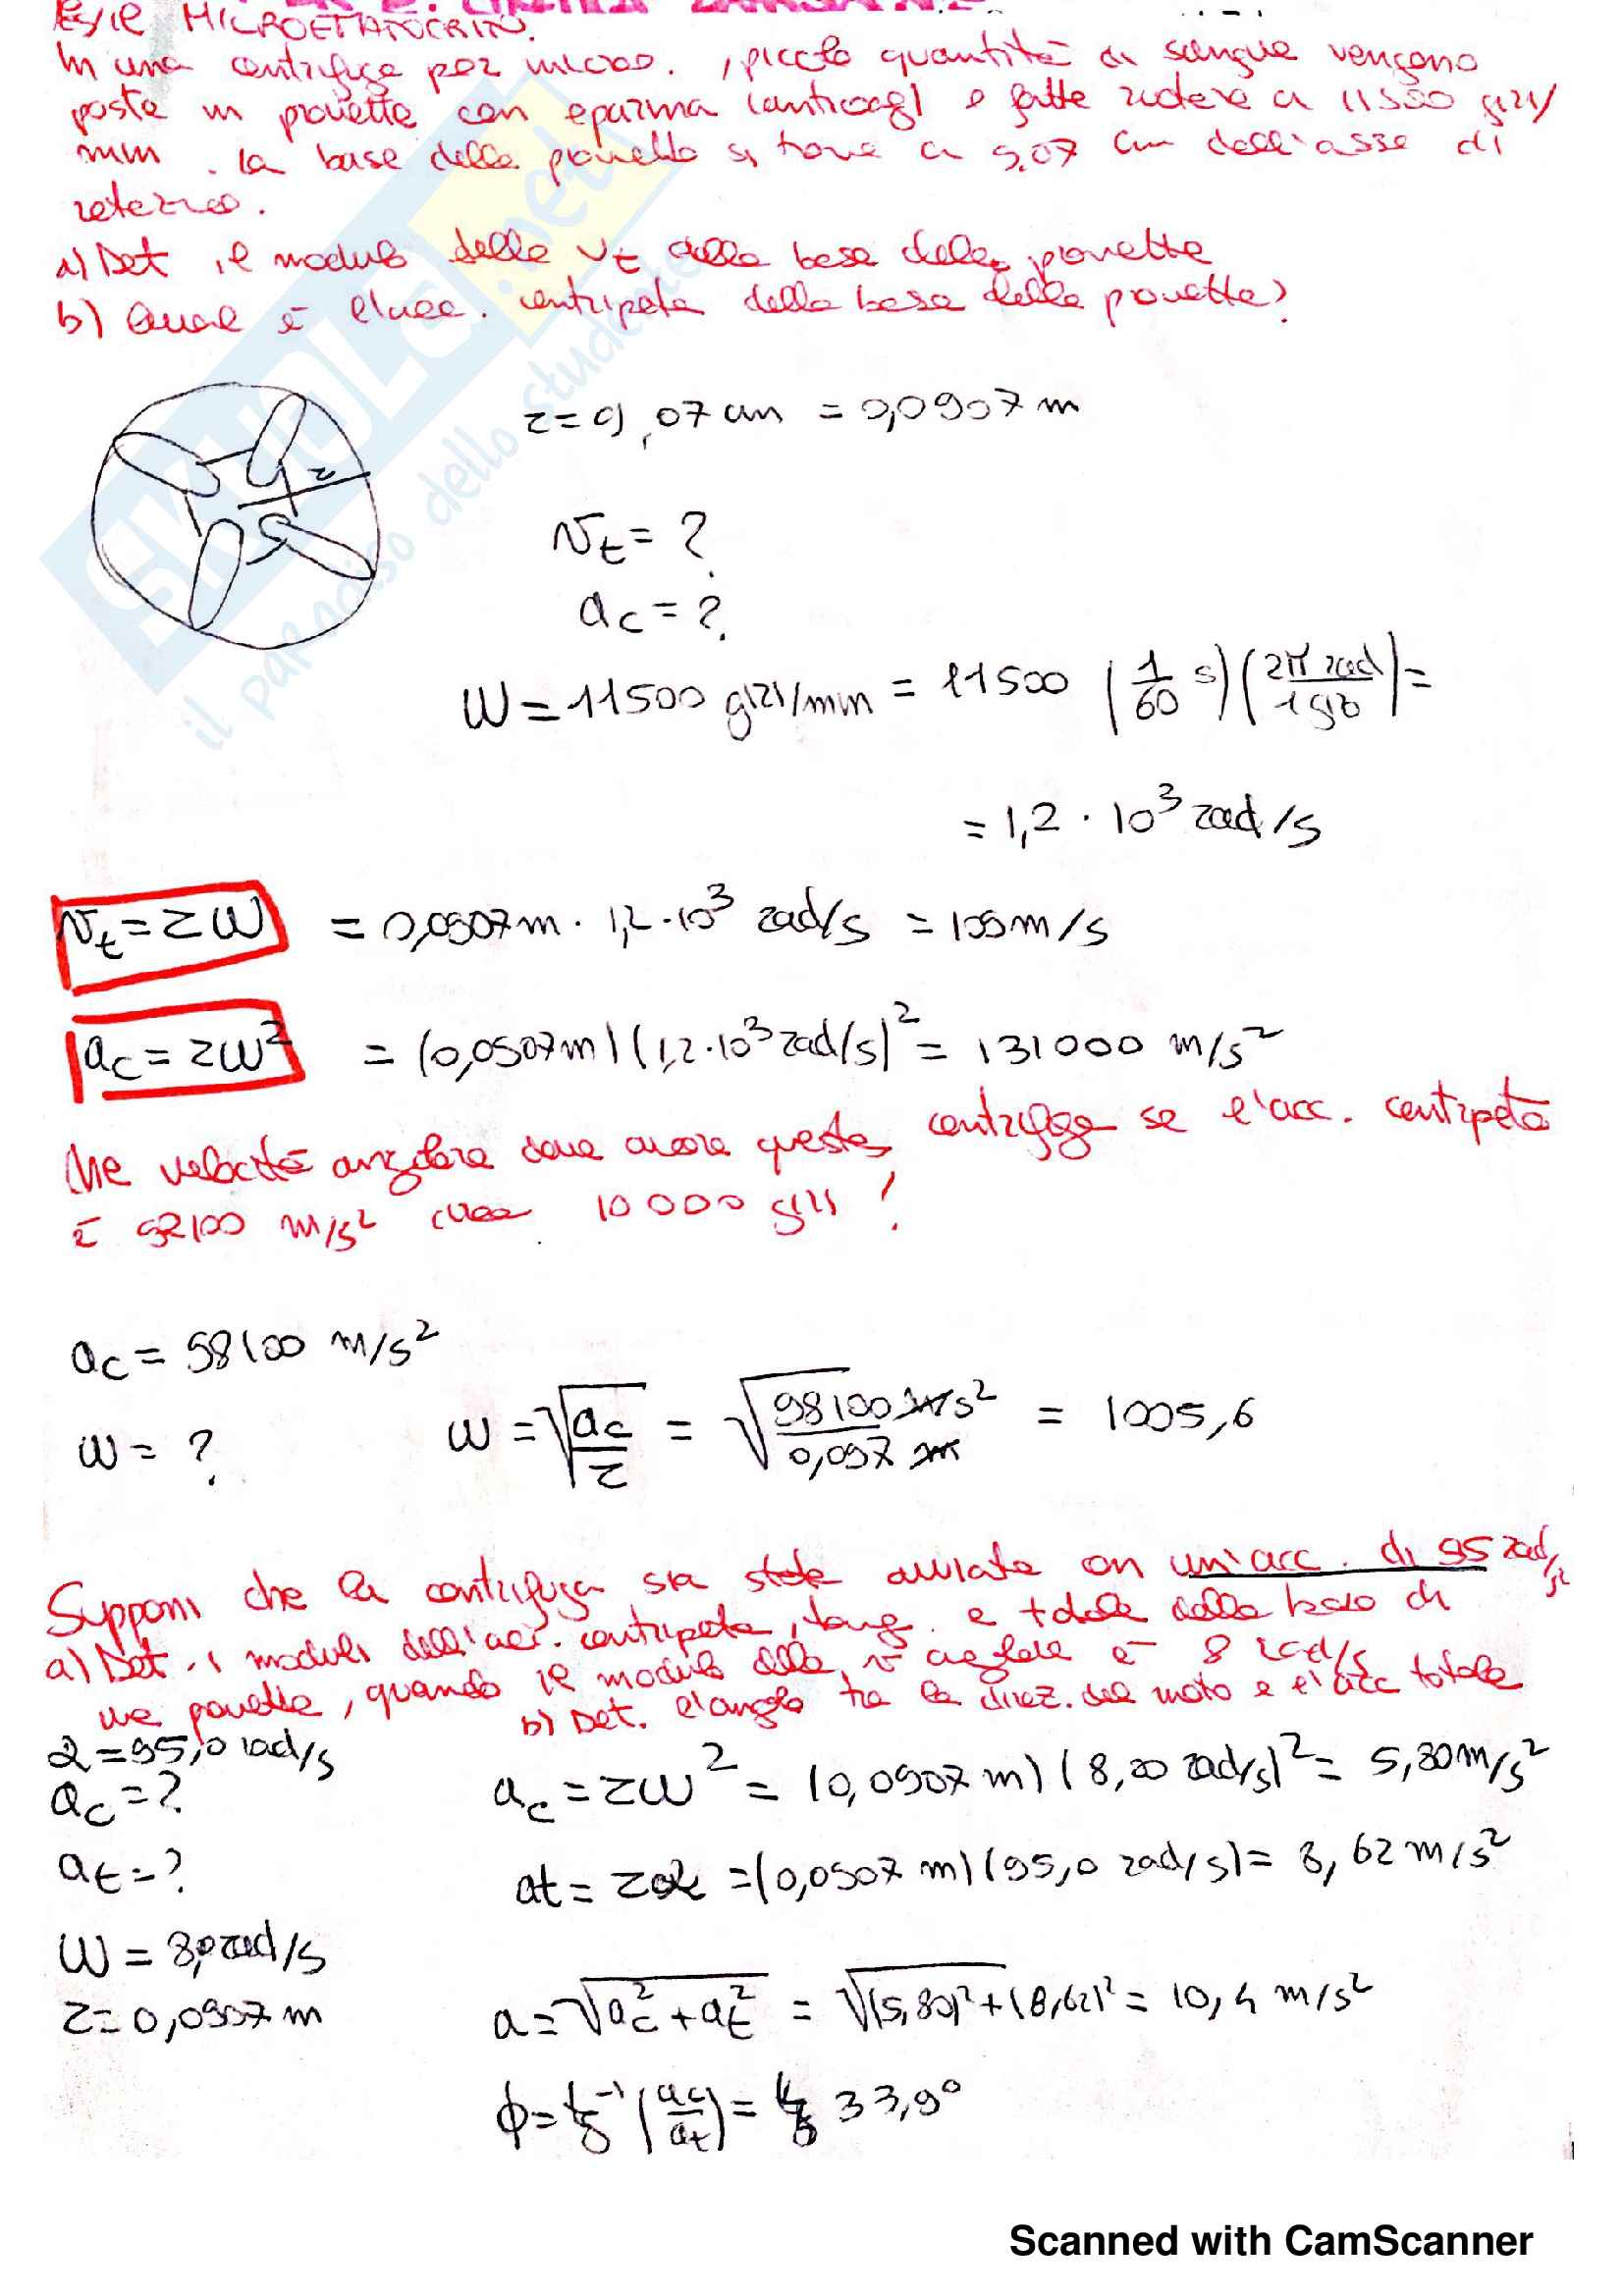 MICROEMATOCRITO.
In una centrifuga per micro. , piccole quantità di sangue vengono
poste in provette con eparina (anticoag) e fatte ruotare a 11500 giri/
min. la base della provetta si trova a 9,07 cm dall'asse di
rotazione.
a) Det il modulo della vt della base della provetta
b) Qual è l'acc. centripeta della base della provetta?
r = 9,07 cm = 0,0907 m
r
vt = ?
ac = ?
ω = 11500 giri/min = 11500 (1/60 s) (2π rad/1 giro) =
= 1,2 · 10³ rad/s
vt = rω = 0,0907 m · 1,2 · 10³ rad/s = 109 m/s
ac = rω² = (0,0907 m) (1,2 · 10³ rad/s)² = 131000 m/s²
Che velocità angolare deve avere questa centrifuga se l'acc. centripeta
è 98100 m/s² 10000 giri
ac = 98100 m/s²
ω = ? ω = √ac/r = √98100 m/s²/0,097 m = 1005,6
Supponi che la centrifuga sia stata avviata con un'acc. di 95 rad/s²
a) Det. i moduli dell'acc. centripeta, tang. e totale della base di
una provetta, quando il modulo della v angolare è 8 rad/s
b) Det. l'angolo tra la direz. del moto e l'acc totale
α = 95,0 rad/s
ac = ? ac = rω² = (0,0907 m) (8,00 rad/s)² = 5,80 m/s²
at = ? at = rα = (0,0907 m) (95,0 rad/s) = 8,62 m/s²
ω = 8,0 rad/s
r = 0,0907 m a = √ac² + at² = √(5,80)² + (8,62)² = 10,4 m/s²
φ = tg⁻¹ (ac/at) = tg 33,9°
SKUOLA.net
il paradiso dello studente
Scanned with CamScanner